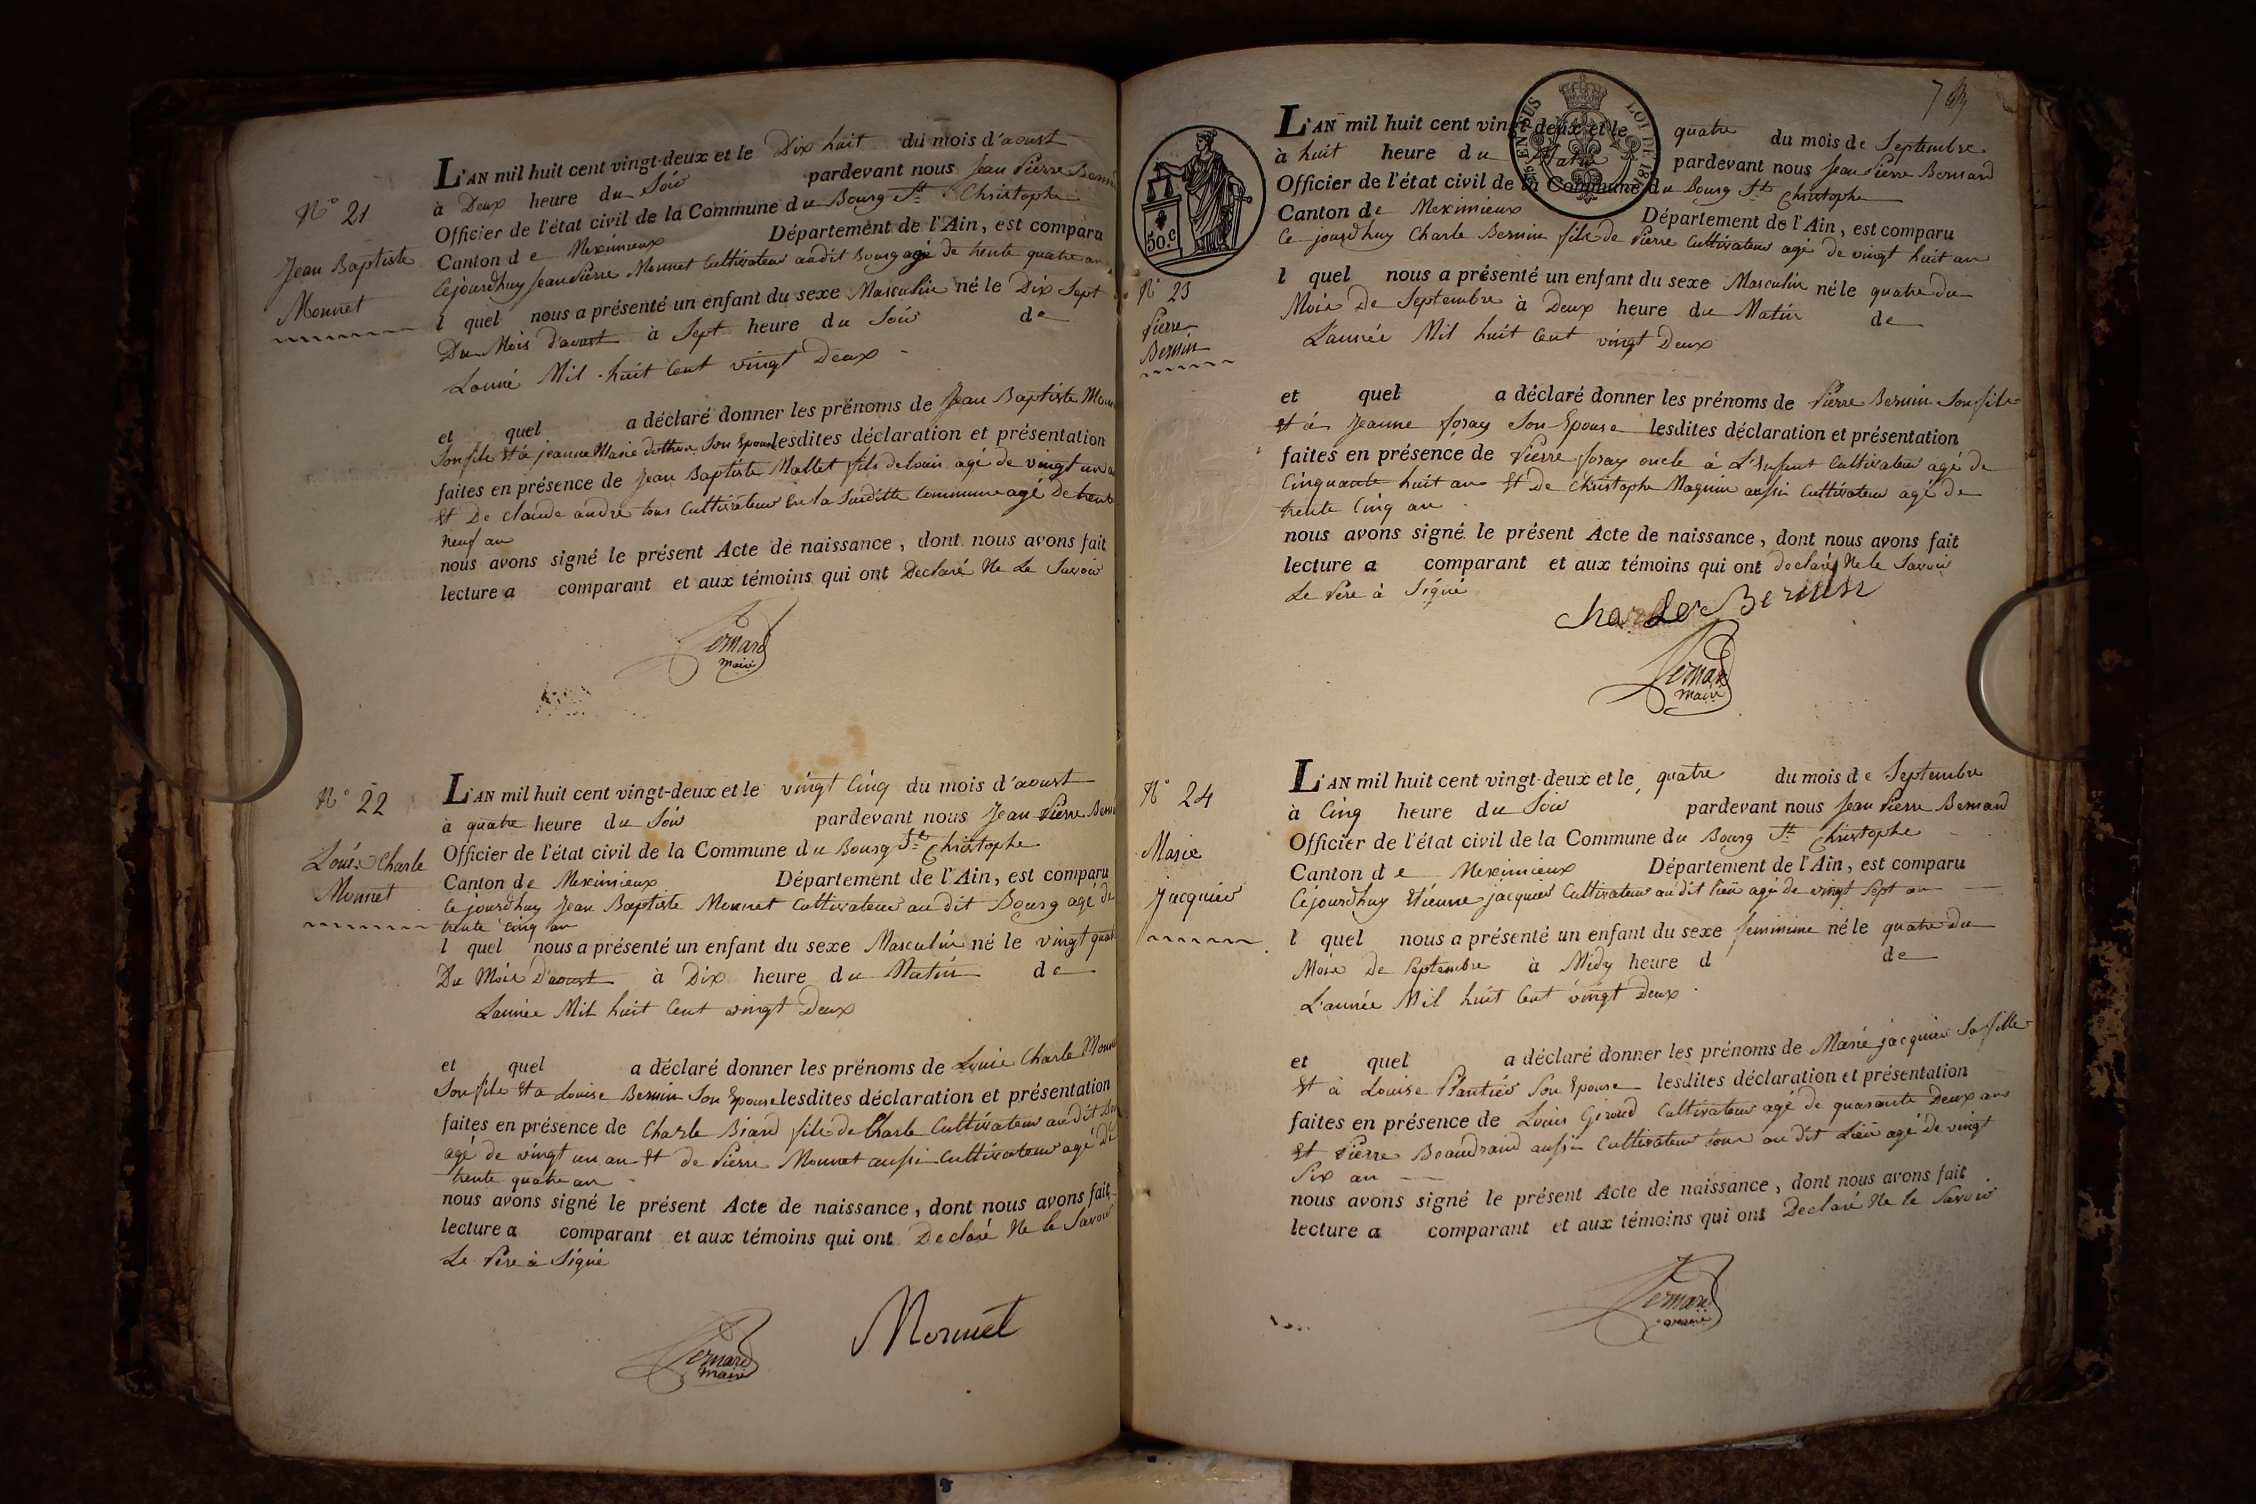 N° 21
Jean Baptiste
Monnet
L'AN mil huit cent vingt-deux et le Dix huit du mois d'aoust
à Deux heure du Soir pardevant nous Jean Pierre
Officier de l'état civil de la Commune du Bourg St Christophe
Canton de Meximieux Département de l'Ain, est comparu
Cejourdhuy Jean Pierre Monnet Cultivateur audit Bourg agé de trente quatre an
l quel nous a présenté un enfant du sexe Masculin né le Dix Sept
Du Mois d'aoust à Sept heure du Soir de
Lanné Mil huit Cent vingt Deux
et quel a déclaré donner les prénoms de Jean Baptiste
Son fils Et à jeanne Marie Son Epouse lesdites déclaration et présentation
faites en présence de Jean Baptiste Mallet fils de Louis agé de vingt un
Et De claude andré tous Cultivateur En la Susditte Commune agé De trente
neuf an
nous avons signé le présent Acte de naissance, dont nous avons fait
lecture a comparant et aux témoins qui ont Declaré Ne Le Savoir
Bernard
maire
N° 22
Louis Charle
Monnet
L'AN mil huit cent vingt-deux et le vingt Cinq du mois d'aoust
à quatre heure du Soir pardevant nous Jean Pierre
Officier de l'état civil de la Commune du Bourg St Christophe
Canton de Meximieux Département de l'Ain, est comparu
Cejourdhuy Jean Baptiste Monnet Cultivateur au dit Bourg agé de
trente cinq an
l quel nous a présenté un enfant du sexe Masculin né le vingt
Du Mois D'aoust à Dix heure du Matin de
Lannée Mil huit Cent vingt Deux
et quel a déclaré donner les prénoms de Louis Charle
Son fils Et a Louise Bernin Son Epouse lesdites déclaration et présentation
faites en présence de Charle Biard fils de Charle Cultivateur au dit
agé de vingt un an Et de Pierre Monnet aussi Cultivateur agé De
trente quatre an
nous avons signé le présent Acte de naissance, dont nous avons fait
lecture a comparant et aux témoins qui ont Declaré Ne le Savoir
Le Père à Signé
Monnet
Bernard
maire
7
LOI DE
50.c
N° 23
Pierre
Bernin
L'AN mil huit cent vingt-deux et le quatre du mois de Septembre
à huit heure du Matin pardevant nous Jean Pierre Bernard
Officier de l'état civil de la Commune du Bourg St Christophe
Canton de Meximieux Département de l'Ain, est comparu
Ce jourdhuy Charle Bernin fils de Pierre Cultivateur agé de vingt huit an
l quel nous a présenté un enfant du sexe Masculin né le quatre du
Mois De Septembre à Deux heure du Matin de
L'année Mil huit Cent vingt Deux
et quel a déclaré donner les prénoms de Pierre Bernin Son fils
Et à Jeanne foray Son Epouse lesdites déclaration et présentation
faites en présence de Pierre foray oncle à L'Enfant Cultivateur agé de
Cinquante huit an Et De Christophe Magnin aussi Cultivateur agé de
trente Cinq an
nous avons signé le présent Acte de naissance, dont nous avons fait
lecture a comparant et aux témoins qui ont declaré Ne le Savoir
Le Père à Signé
Charle Bernin
Bernard
maire
N° 24
Marie
Jacquier
L'AN mil huit cent vingt-deux et le quatre du mois de Septembre
à Cinq heure du Soir pardevant nous Jean Pierre Bernard
Officier de l'état civil de la Commune du Bourg St Christophe
Canton de Meximieux Département de l'Ain, est comparu
Cejourdhuy Etienne jacquier Cultivateur au dit lieu agé de vingt Sept an
l quel nous a présenté un enfant du sexe feminime né le quatre du
Mois De Septembre à Midy heure d de
L'année Mil huit Cent vingt Deux
et quel a déclaré donner les prénoms de Marie jacquier Sa fille
Et à Louise Plantier Son Epouse lesdites déclaration et présentation
faites en présence de Louis Giroud Cultivateur agé de quarante Deux ans
Et Pierre Beaudrand aussi Cultivateur tous au dit Lieu agé de vingt
Six an
nous avons signé le présent Acte de naissance, dont nous avons fait
lecture a comparant et aux témoins qui ont Declaré Ne le Savoir
Bernard
maire